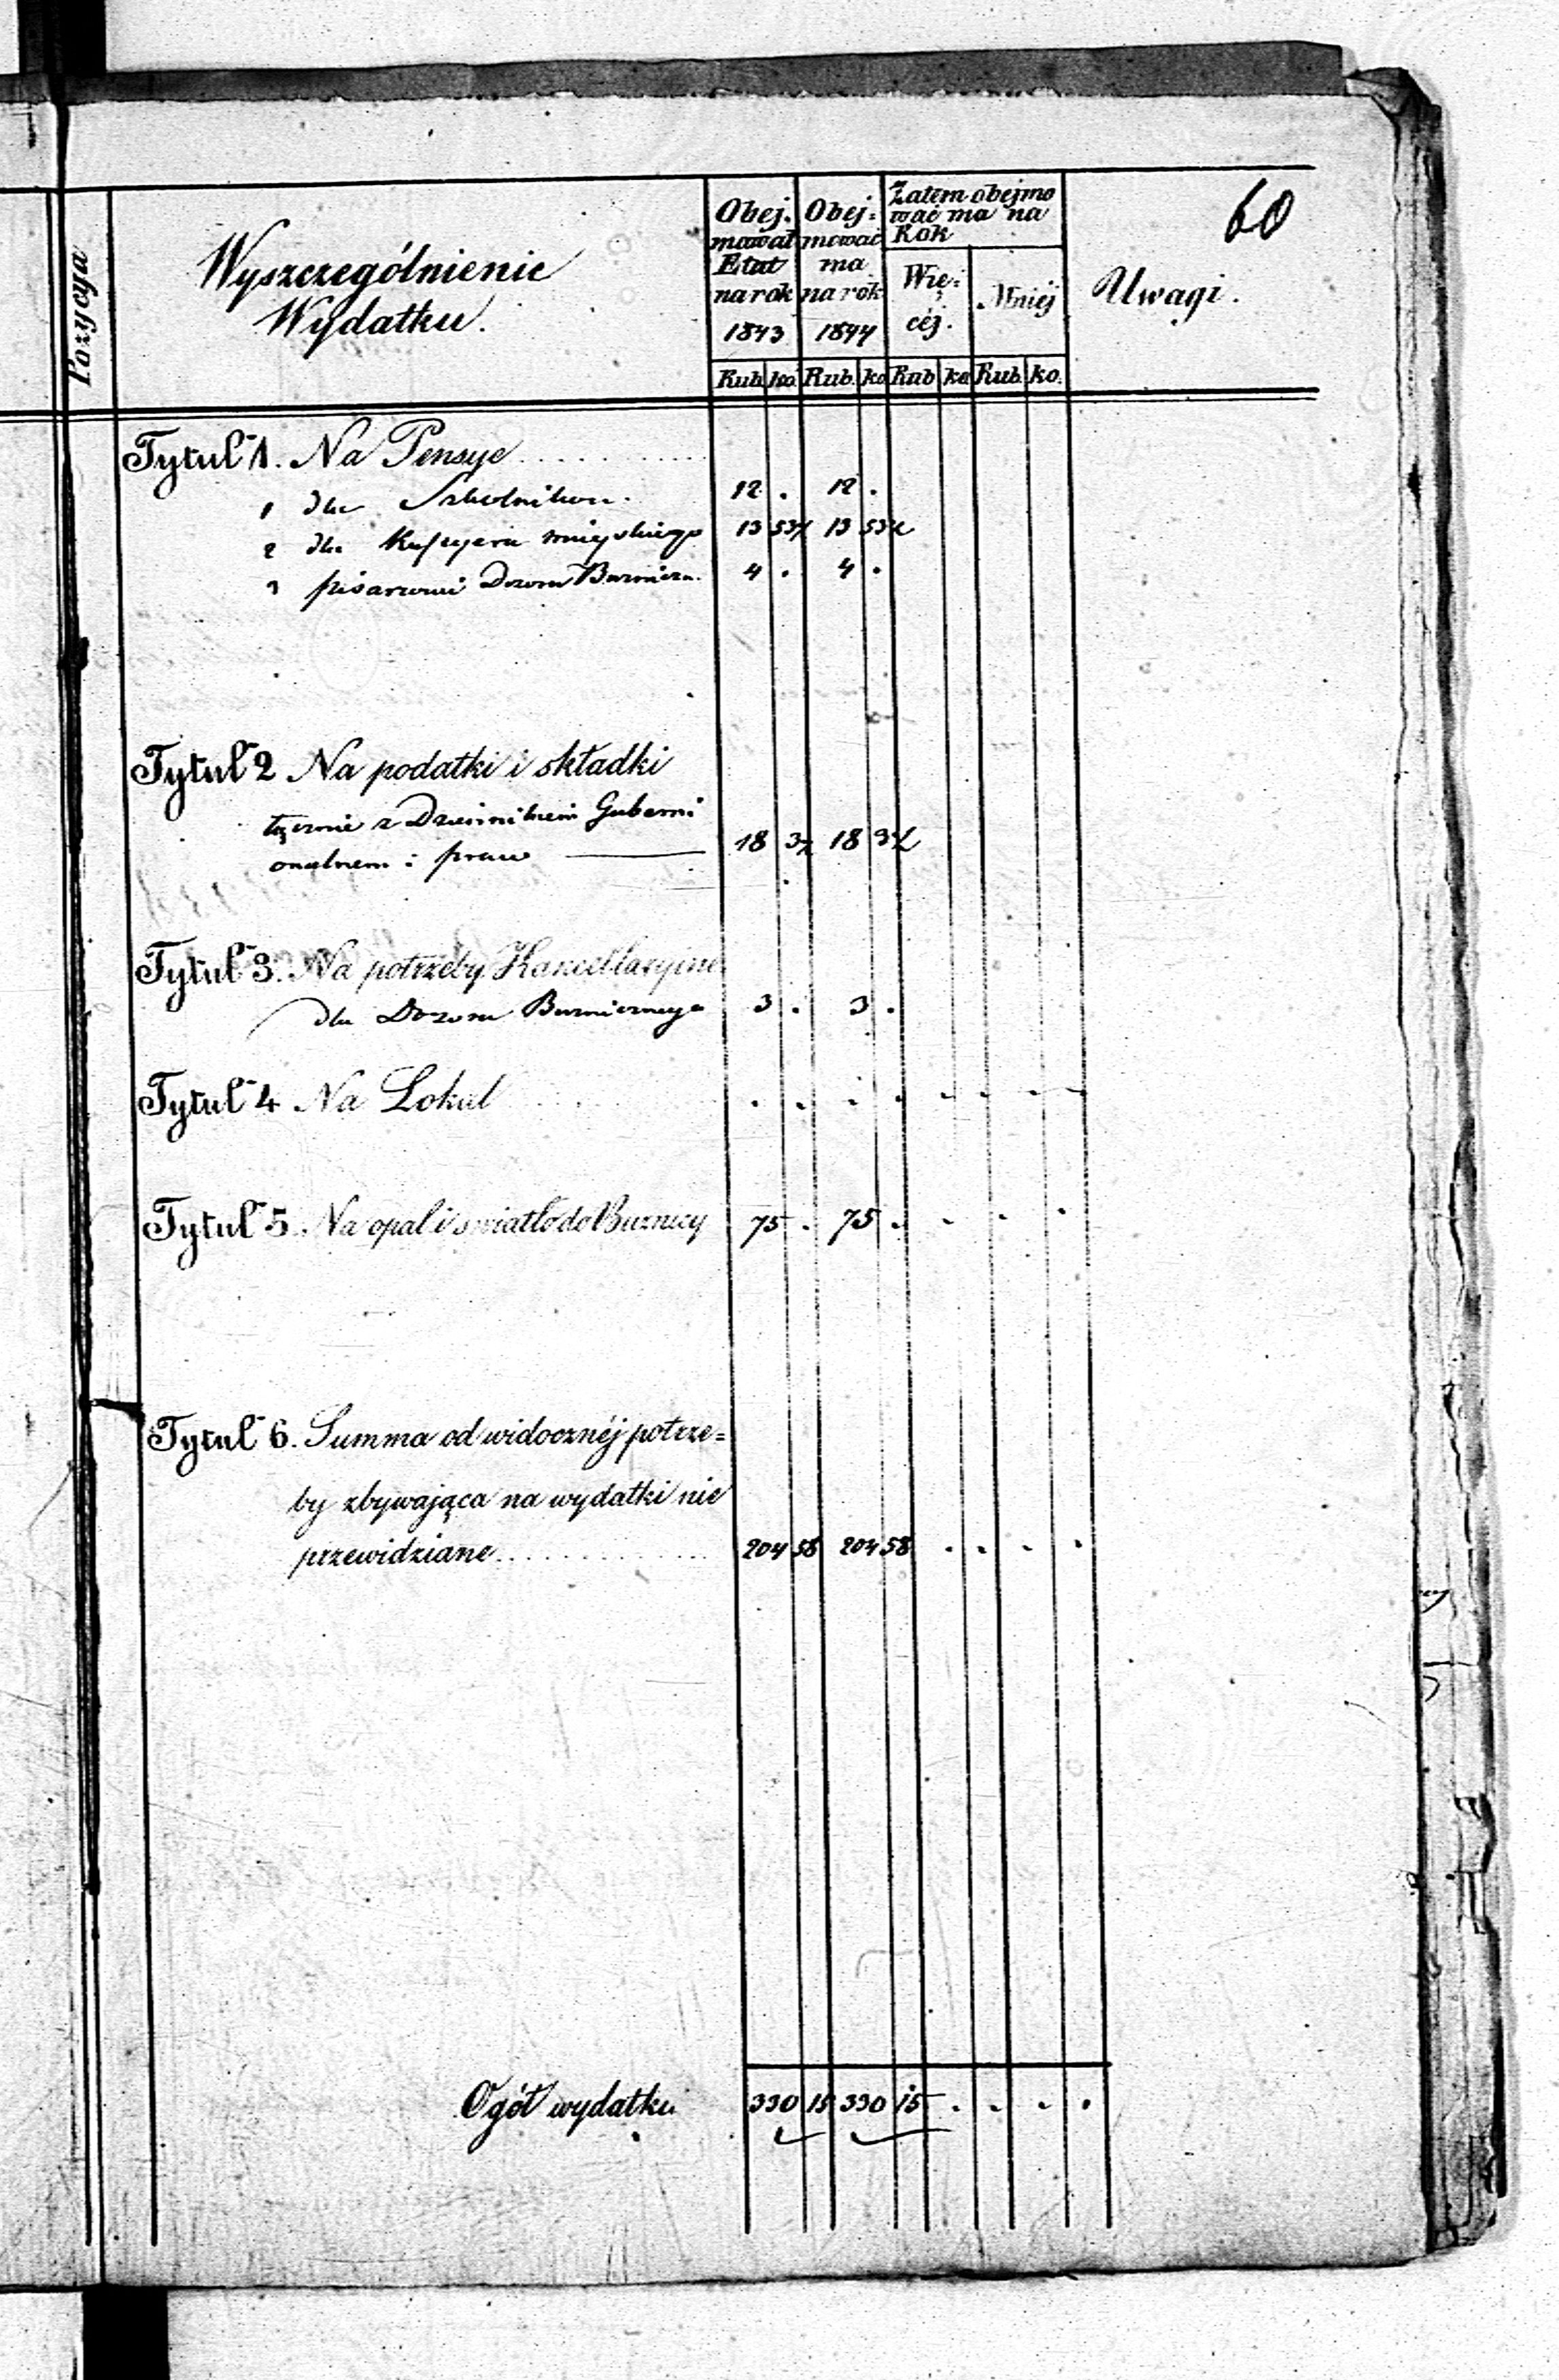 60
Pozycya
Wyszczególnienie
Wydatku.
Obej.
mował
Etat
na rok
1843
Obej=
mować
ma
na rok
1844
Zatém obejmo
wać ma na
Rok
Wię=
céj.
Mniéj
Uwagi.
Rub. ko. Rub. ko Rub ko Rub. ko.
Tytuł 1. Na Pensye
1 dla Szkolnika. 12 . 12 .
2 dla Kassyera mieyskiego 13 53½ 13 53½
3 pisarzowi Dozoru Bużnicz. 4 . 4 .
Tytuł 2 Na podatki i składki
łącznie z Dziennikiem Guberni
onalnem i praw 18 3½ 18 3½
Tytuł 3. Na potrzeby Kancellaryjne
dla Dozoru Bużnicznego 3 . 3 .
Tytuł 4 Na Lokal . . . . . . . .
Tytuł 5. Na opał i światło do Bużnicy 75 . 75 . . . .
Tytuł 6. Summa od widocznéj potrze=
by zbywająca na wydatki nie
przewidziane 204 58 204 58 . . . .
Ogół wydatku 330 15 330 15 . . . .